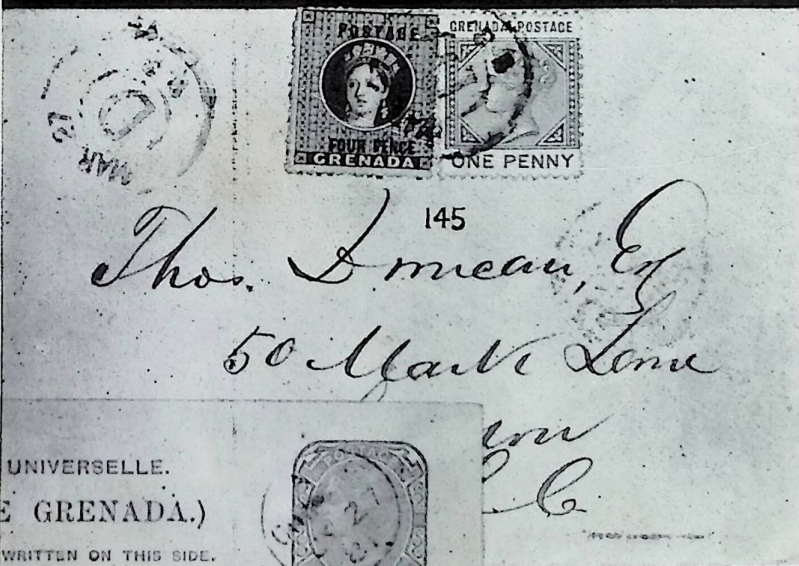 POSTAGE
FOUR PENCE
GRENADA
GRENADA POSTAGE
ONE PENNY
MAR 27
D
145
Thos. Duncan, Esq
50 Mark Lane
E.C.
UNIVERSELLE.
GRENADA.)
WRITTEN ON THIS SIDE.
27